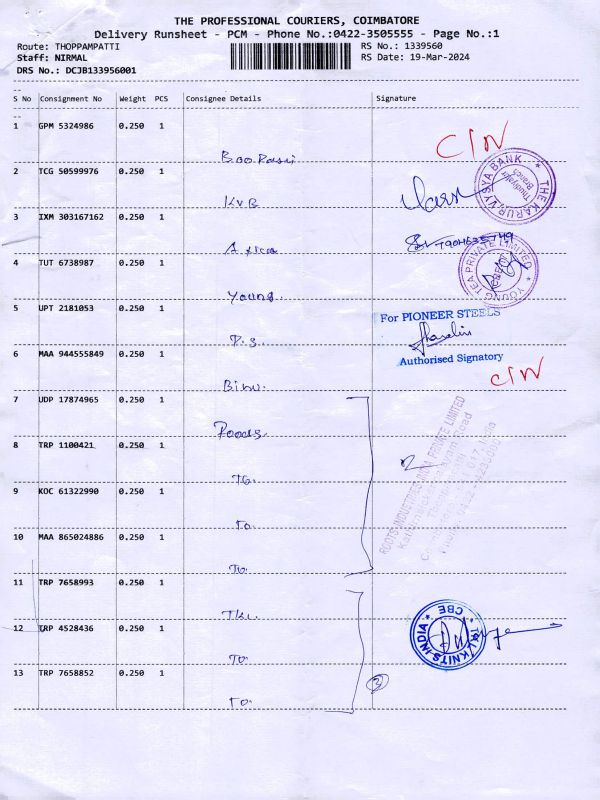 THE PROFESSIONAL COURIERS, COIMBATORE
Delivery Runsheet - PCM - Phone No.:0422-3505555 - Page No.:1
Route: THOPPAMPATTI RS No.: 1339560
Staff: NIRMAL RS Date: 19-Mar-2024
DRS No.: DCJB133956001
S No Consignment No Weight PCS Consignee Details Signature
1 GPM 5324986 0.250 1
C/N
2 TCG 50599976 0.250 1
KVB
THE KARUR VYSYA BANK
Branch
3 IXM 303167162 0.250 1
4 TUT 6738987 0.250 1
Young.
YOUNG TEA PRIVATE LIMITED
5 UPT 2181053 0.250 1
P.S.
For PIONEER STEELS
Authorised Signatory
6 MAA 944555849 0.250 1
C/N
7 UDP 17874965 0.250 1
8 TRP 1100421 0.250 1
ROOTS INDUSTRIES INDIA PRIVATE LIMITED
9 KOC 61322990 0.250 1
To.
10 MAA 865024886 0.250 1
To.
11 TRP 7658993 0.250 1
12 TRP 4528436 0.250 1
To.
TKL KNITS INDIA * CBE *
13 TRP 7658852 0.250 1
3
To.